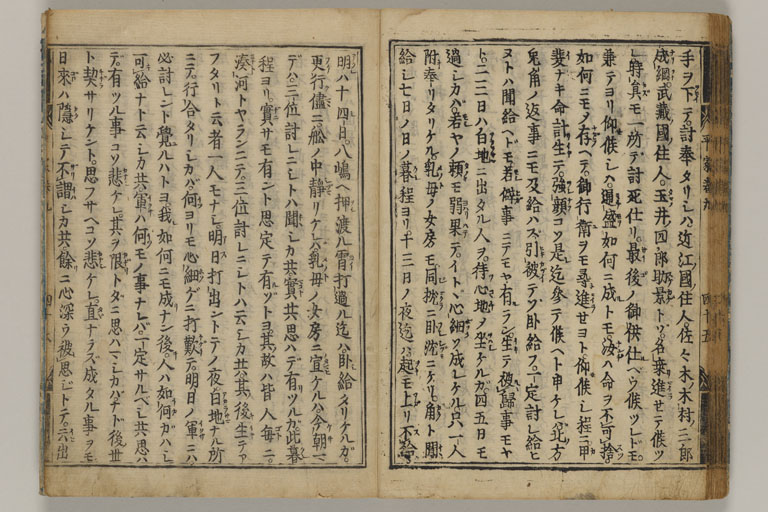 手ヲ下テ討奉タリシハ近江國住人佐々木ノ木村ノ三郎
成綱武藏國住人玉井四郎助景トソ各衆進セテ候ツ
レ時員モ一所テ討死仕リ最後ノ御供仕ヘウ候ツレドモ
兼テヨリ仰候シハ通盛如何ニ成トモ汝ハ命ヲ不可捨
如何ニモメ存ヘテ御行衛ヲモ尋進セヨト仰候シ程ニ甲
斐ナキ命計生テ強顔コソ是迄參テ候ヘト申ケレ北方
兎角ノ返事ニモ及給ハス引被テソ臥給フ一定討レ給ヒ
ヌトハ聞給ヘドモ若僻事ニテモヤ有ラン生テ被歸事モヤ
ト二三日ハ白地ニ出タル人ヲ待心地ノ坐ケルガ四五日モ
過シカバ若ヤノ頼モ弱果テイトヽ心細ウ成レケル只一人
附奉リタリケル乳母ノ女房モ同枕ニ臥沈ニケリ角ト聞
給シ七日ノ日ノ暮程ヨリ十三日ノ夜迄ハ起モ上リ不給
平家卷九
四十五
明ハ十四日八嶋ヘ押渡ル霄打過ル迄ハ臥給タリケルガ
更行儘ニ舩ノ中靜リケレハ乳母ノ女房ニ宣ケルハ今朝マ
デハ三位討レニシトハ聞シカ共實共思ハデ有ツルカ此暮
程ヨリ實サモ有ント思定テ有ソトヨ其故ハ皆人每ニ
湊河トヤランニテ三位討レニシトハ云シカ共其後生テア
フタリト云者一人モナシ明日打出ントテノ夜白地ナル所
ニテ行合タリシカバ何ヨリモ心細ゲニ打歎テ明日ノ軍ニハ
必討レント覺ルハトヨ我如何ニモ成ナン後人ハ如何ガハシ
可給ナト云シカ共軍ハ何モノ事ナレバ一定サルベシ共思ハ
テ有ツル事コソ悲ケレ其ヲ限トタニ思ハマシカバナト後世
ト契サリケント思フサヘコソ悲ケレ直ナラズ成タル事ヲモ
日來ハ隱シテ不謂シカ共餘ニ心深ウ被思ジトテ云出